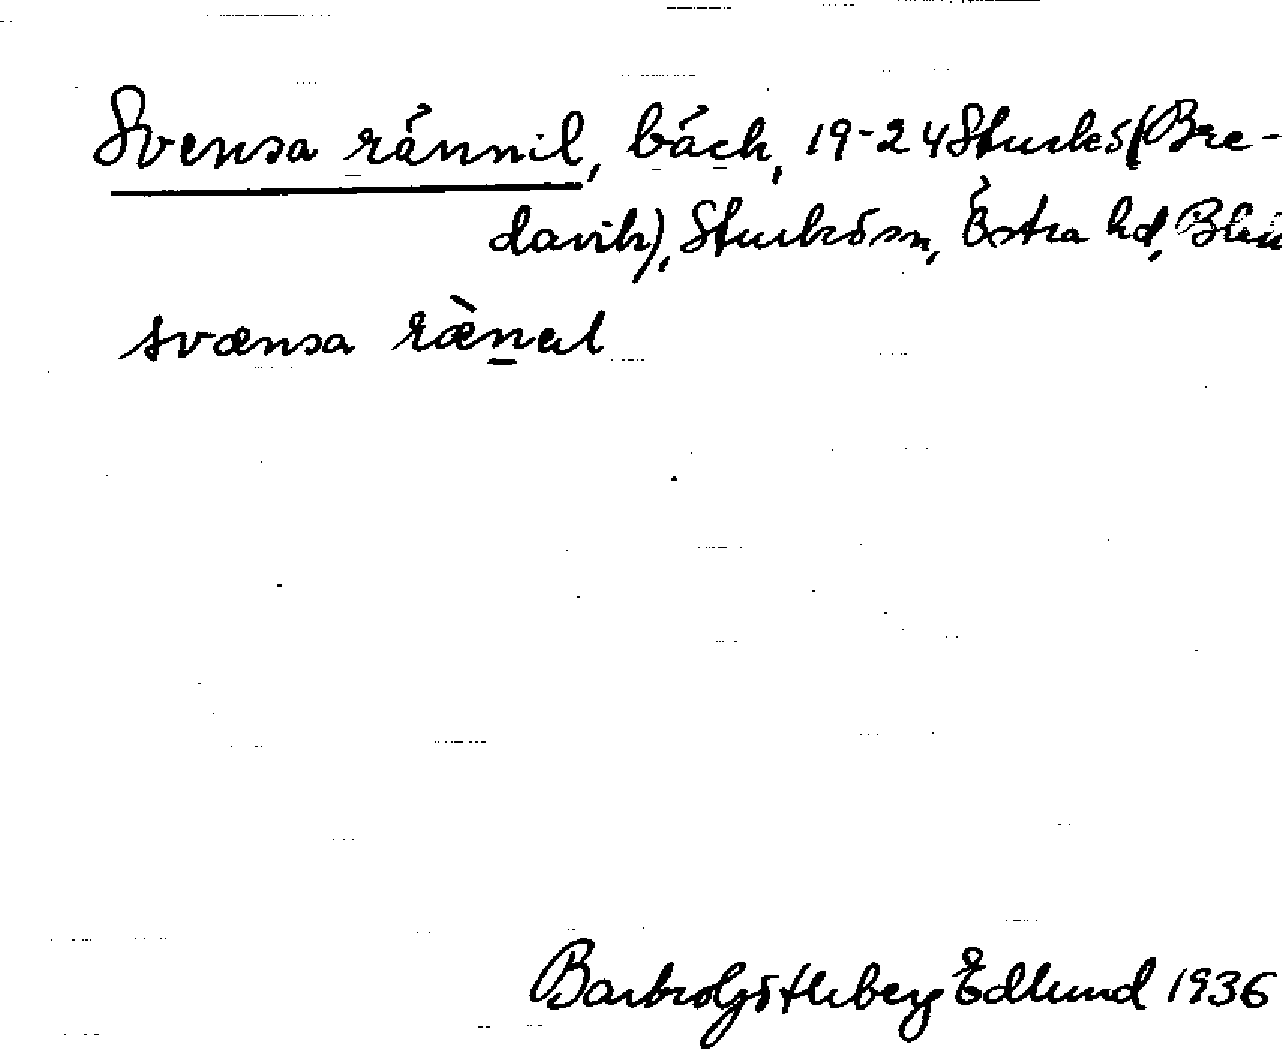 Svensa rännil, bäck, 19-24 Sturkö (Bre-
davik), Sturkö sn, Östra hd, Blek
svænsa ræ̀nɩl
Barbro Götleberg Edlund 1936